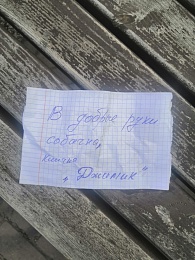 В добрые руки
собачка,
кличка
„Джимик"